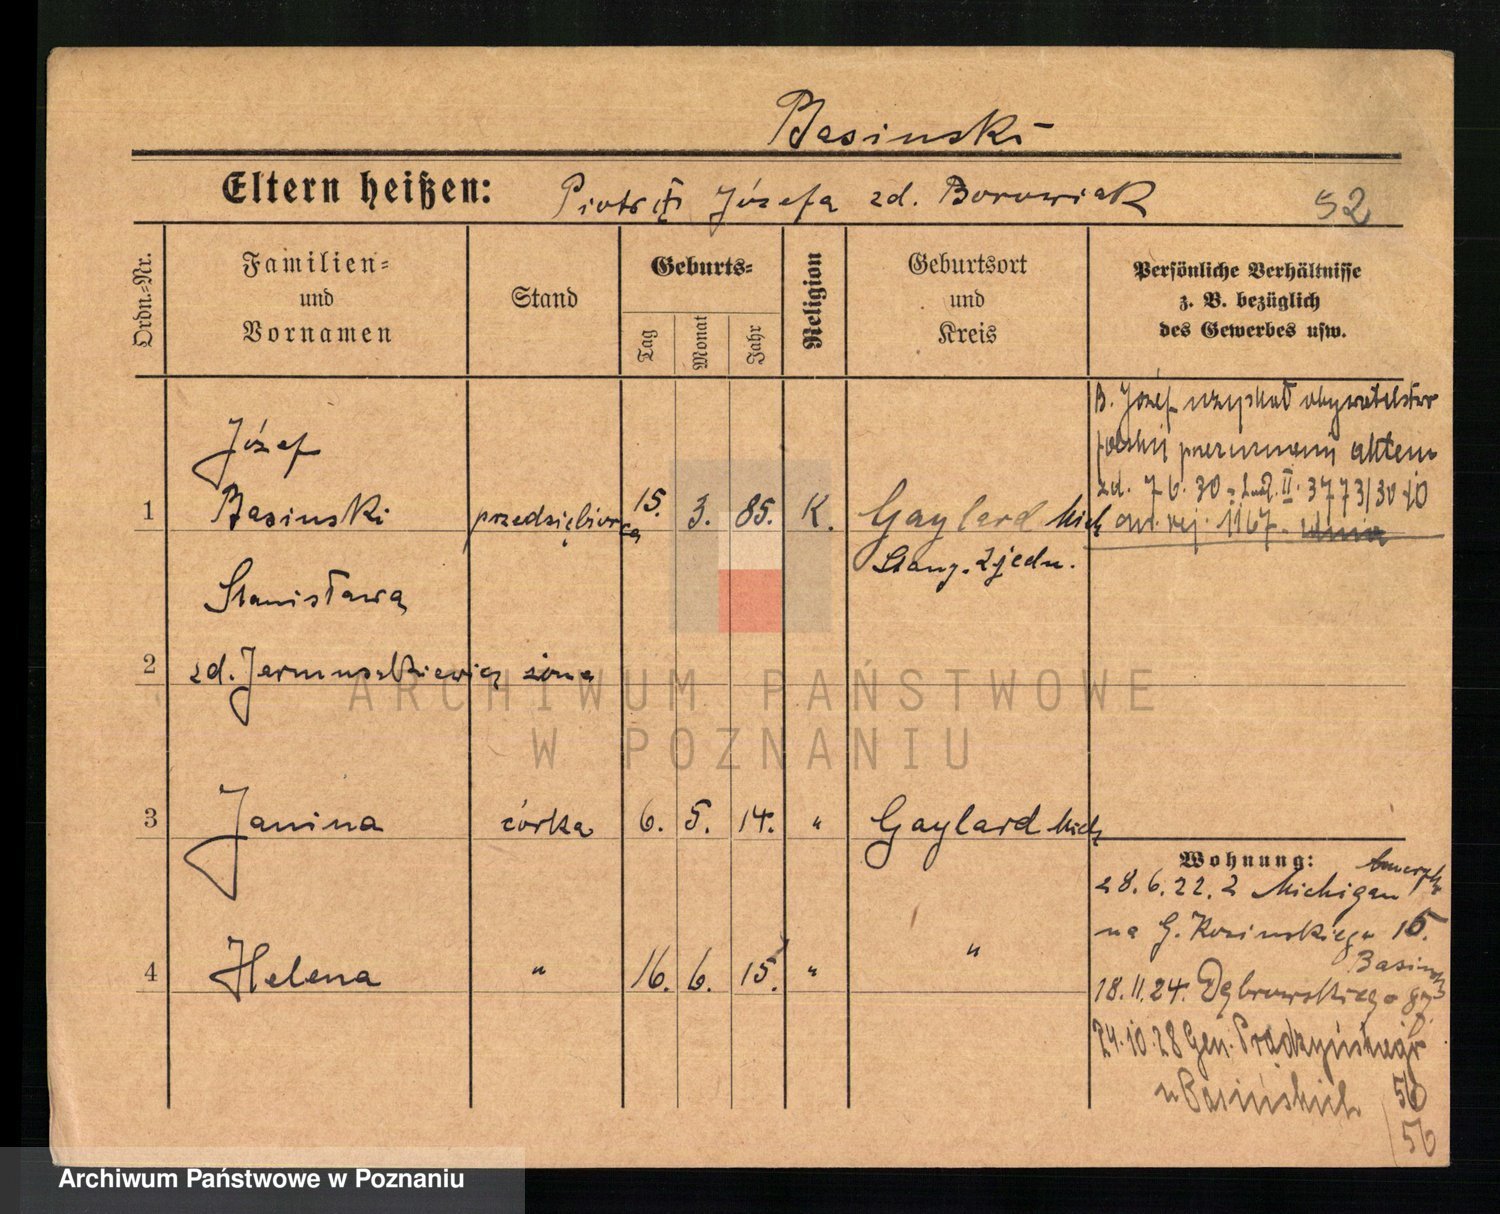 Basinski
Eltern heißen: Piotr i Józefa zd. Borowiak 52
Ordn.-Nr.
Familien=
und
Vornamen
Stand
Geburts=
Tag
Monat
Jahr
Religion
Geburtsort
und
Kreis
Persönliche Verhältnisse
z. B. bezüglich
des Gewerbes usw.
B. Józef uzyskał obywatelstwo
polskie aktem
zd. 7.6.30 II. 3773/30
rej. 1167
Józef
1 Basinski przedsiębiorca 15. 3. 85. K. Gaylard Mich
Stany. Zjedn.
Stanisława
2 zd. Jarmuszkiewicz żona
3 Janina córka 6. 5. 14. " Gaylard Mich
4 Helena " 16. 6. 15. " "
Wohnung:
28.6.22. z Michigan Ameryka
na G. Kosinskiego 15.
Basinski
18.11.24. Dąbrowskiego
24.10.28 Gen. Prądzyńskiego
u Basińskich 50
56
ARCHIWUM PAŃSTWOWE
W POZNANIU
Archiwum Państwowe w Poznaniu